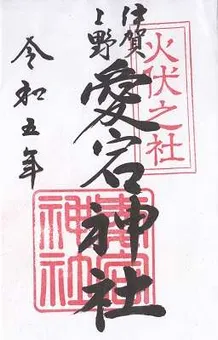 火伏之社
伊賀
上野
愛宕神社
愛宕
神社
令和五年